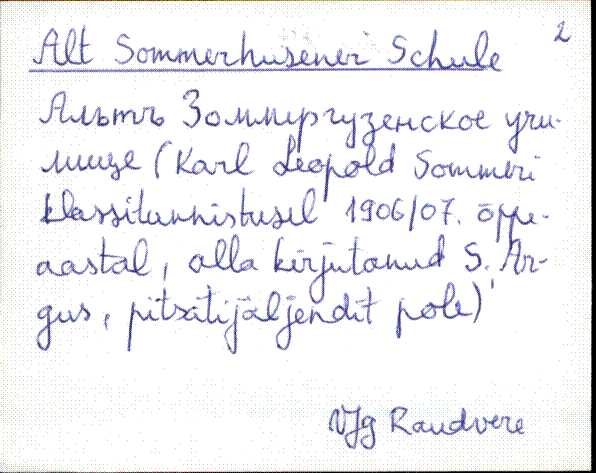 2
Alt Sommerhusener Schule
Альтъ Зоммергузенское учи-
лище (Karl Leopold Sommeri
klassitunnistusel 1906/07. õppe-
aastal, alla kirjutanud S. Ar-
gus, pitsatijäljendit pole)
VJg Raudvere